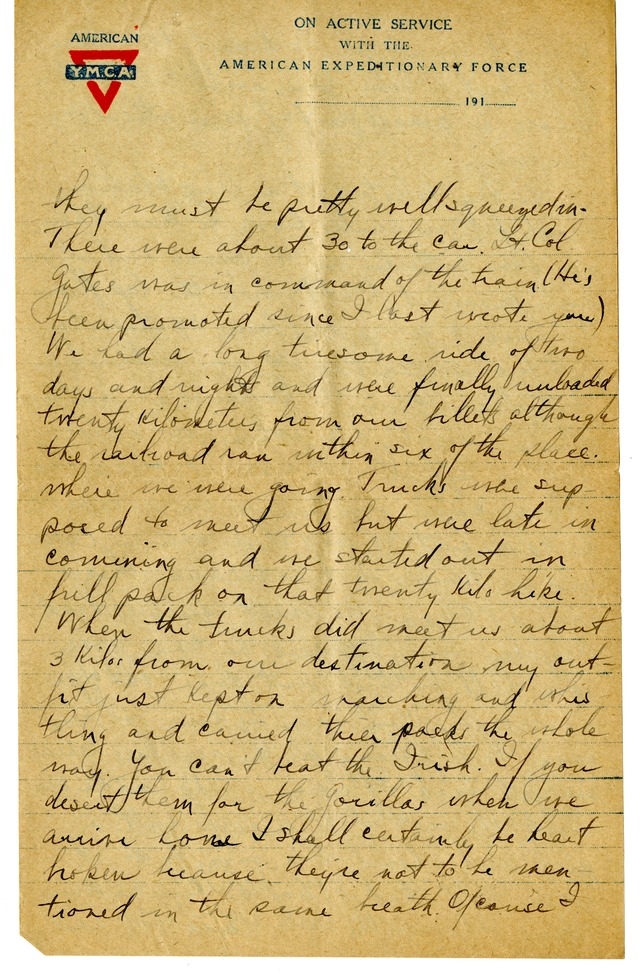 AMERICAN
Y.M.C.A.
ON ACTIVE SERVICE
WITH THE
AMERICAN EXPEDITIONARY FORCE
191
they must be pretty well squeezed in.
There were about 30 to the car. Lt. Col
Gates was in command of the train (He's
been promoted since I last wrote you)
We had a long tiresome ride of two
days and nights and were finally unloaded
twenty kilometers from our billets although
the railroad ran within six of the place.
where we were going. Trucks were sup
posed to meet us but were late in
comining and we started out in
full pack on that twenty kilo hike.
When the trucks did meet us about
3 kilos from our destination my out-
fit just kept on marching and whis
tling and carried their packs the whole
way. You can't beat the Irish. If you
desert them for the Gorillas when we
arrive home I shall certainly be heart
broken because they're not to be men
tioned in the same breath. Ofcourse I